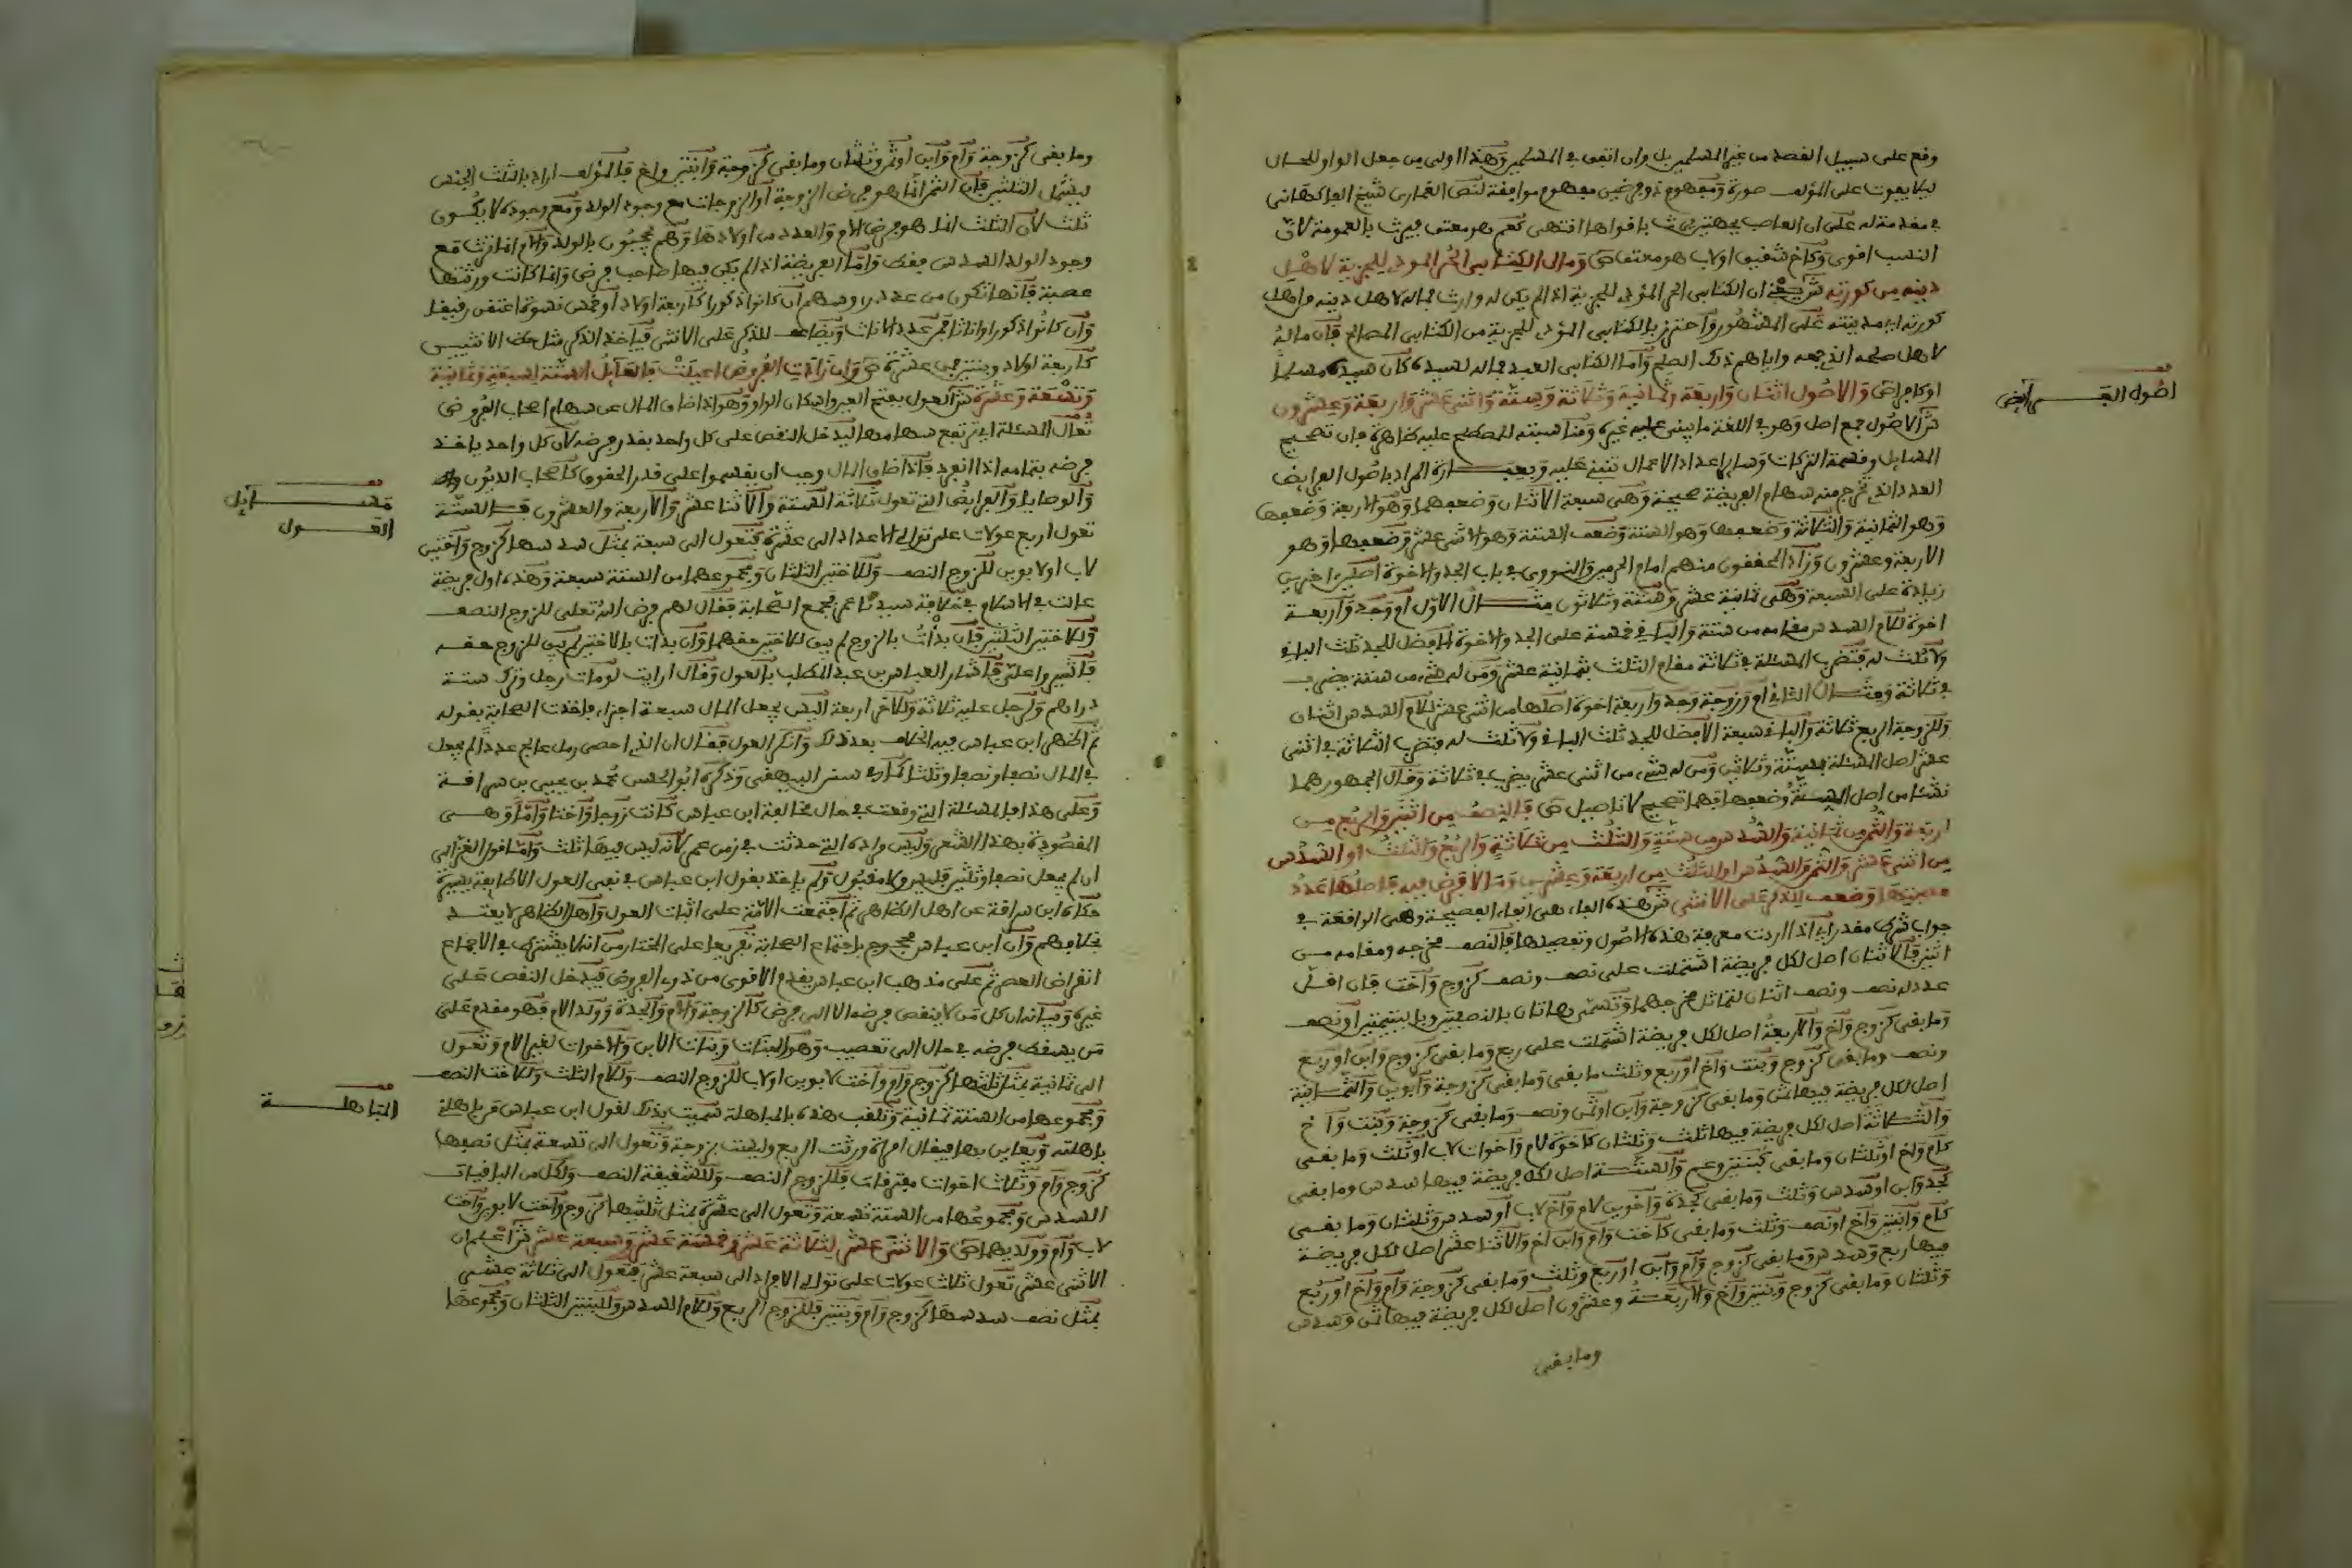 وقع على سبيل القصد من غير المسلم بل وان اتفق في المسلم وهذا اولى من جعل الواو للحال
ليلا يفوت على المؤلف صورة ومفهوم ذو فرضين مفهوم موافقة لنص الغماري شيخ الفاكهاني
في مقدمة له على ان العاصب بجهتين يرث باقواها انتهى نعم هو معتق فيرث بالعمومة لان
النسب اقوى وكاخ شقيق اولاب هو معتق ص ومال الكتابي الحر المودي للجزية لاهل
دينه من كورته ش يعني ان الكتابي الحر المودي للجزية اذا لم يكن له وارث فماله لاهل دينه من اهل
كورته اي مدينته على المشهور واحترز بالكتابي المودي للجزية من الكتابي المصالح فان ماله
لاهل صلحه الذي جمعه واياهم ذلك الصلح واما الكتابي العبد فماله لسيده كان سيده مسلما
او كافرا ص والاصول اثنان واربعة وثمانية وثلاثة وستة واثنى عشر واربعة وعشرون
ش الاصول جمع اصل وهو في اللغة ما يبنى عليه غيره ومناسبته للمصطلح عليه ظاهرة فان تصحيح
المسايل وقسمة التركات وساير اعداد الاعمال تنبني عليه المراد باصول الفرايض
العدد الذي تخرج منه سهام الفريضة صحيحة وهي سبعة الاثنان وضعفهما وهو الاربعة وضعفها
وهو الثمانية والثلاثة وضعفها وهو الستة وضعف الستة وهو الاثنى عشر وضعفها وهو
الاربعة وعشرون وزاد المحققون منهم امام الحرمين والنووي في باب الجد والاخوة اصلين اخرين
زيادة على السبعة وهي ثمانية عشر وستة وثلاثون مثال الاول ام وجد واربعة
اخوة للام السدس مقامه من ستة والباقي خمسة على الجد والاخوة الافضل للجد ثلث الباقي
ولا ثلث له فتضرب المسئلة في ثلاثة مقام الثلث بثمانية عشر ومن له شيء من ستة يضرب
في ثلاثة ومثال الثاني ام وزوجة وجد واربعة اخوة اصلها من اثنى عشر للام السدس اثنان
وللزوجة الربع ثلاثة والباقي سبعة الافضل للجد ثلث الباقي ولا ثلث له فتضرب الثلاثة في اثنى
عشر اصل المسئلة بستة وثلاثين ومن له شيء من اثنى عشر يضرب في ثلاثة وقال الجمهور هما
نشئا من اصل الستة وضعفها فهما تصحيح لا تاصيل ص فالنصف من اثنين والربع من
اربعة والثمن من ثمانية والسدس من ستة والثلث من ثلاثة والربع والثلث او السدس
من اثنى عشر والثمن والسدس او الثلث من اربعة وعشرين وما لا فرض فيه فاصلها عدد
عصبتها وضعف للذكر على الانثى ش هذه الفاء هي الفاء الفصيحة وهي الواقعة في
جواب شرط مقدر اي اذا اردت معرفة هذه الاصول وتفصيلها فالنصف مخرجه ومقامه من
اثنين فالاثنان اصل لكل فريضة اشتملت على نصف ونصف كزوج واخت فان اقل
عدد له نصف ونصف اثنان لتماثل مخرجهما وتسمى هاتان بالنصفيتين وباليتيمتين او نصف
وما بقي كزوج واخ والاربعة اصل لكل فريضة اشتملت على ربع وما بقي كزوج وابن او ربع
ونصف وما بقي كزوج وبنت واخ او ربع وثلث ما بقي وما بقي كزوجة وابوين والثمانية
اصل لكل فريضة فيها ثمن وما بقي كزوجة وابن او ثمن ونصف وما بقي كزوجة وبنت واخ
والثلاثة اصل لكل فريضة فيها ثلث وثلثان كاخوة لام واخوات لاب او ثلث وما بقي
كام واخ او ثلثان وما بقي كبنتين وعم والستة اصل لكل فريضة فيها سدس وما بقي
كجد وابن او سدس وثلث وما بقي كجدة واخوين لام واخ لاب او سدس وثلثان وما بقي
كام وابنتين واخ او نصف وثلث وما بقي كاخت وام وابن اخ والاثنا عشر اصل لكل فريضة
فيها ربع وسدس وما بقي كزوج وام وابن او ربع وثلث وما بقي كزوجة وام واخ او ربع
وثلثان وما بقي كزوج وبنتين واخ والاربعة وعشرون اصل لكل فريضة فيها ثمن وسدس
وما بقي
اصول الفرايض
وما بقي كزوجة وام وابن او ثمن وثلثان وما بقي كزوجة وابنتين واخ فالمؤلف اراد بالثلث الجنس
ليشمل الثلثين فان الثمن انما هو فرض الزوجة او الزوجات مع وجود الولد ومع وجوده لا يكون
ثلث لان الثلث انما هو فرض الام والعدد من اولادها وهم محجبون بالولد والام انما ترث مع
وجود الولد السدس فقط واما الفريضة اذا لم يكن فيها صاحب فرض وانما كانت ورثتها
عصبة فانها تكون من عدد رءوسهم ان كانوا ذكورا كاربعة اولاد او خمس نسوة اعتقن رقيقا
وان كانوا ذكورا واناثا فمن عدد الاناث ويضاعف للذكر على الانثى فياخذ الذكر مثل حظ الانثيين
كاربعة اولاد وبنتين فمن عشرة ص وان زادت الفروض اعيلت فالعايل الستة لسبعة وثمانية
وتسعة وعشرة ش العول بفتح العين واسكان الواو وهو اذا ضاق المال عن سهام اصحاب الفروض
تعال المسئلة اي ترتفع سهامها ليدخل النقص على كل واحد بقدر فرضه لان كل واحد ياخذ
فرضه بتمامه اذا انفرد فاذا ضاق المال وجب ان يقسموا على قدر الحقوق كاصحاب الديون
والوصايا والفرايض التي تعول ثلاثة الستة والاثنا عشر والاربعة والعشرون فالستة
تعول اربع عولات على توالي الاعداد الى عشرة فتعول الى سبعة بمثل سدسها كزوج واختين
لاب او لابوين للزوج النصف وللاختين الثلثان ومجموعهما من الستة سبعة وهذه اول فريضة
عالت في الاسلام في خلافة سيدنا عمر فجمع الصحابة فقال لهم فرض الله تعلى للزوج النصف
وللاختين الثلثين فان بدأت بالزوج لم يبق للاختين حقهما وان بدات بالاختين لم يبق للزوج حقه
فاشيروا علي فاشار العباس بن عبد المطلب بالعول وقال ارايت لو مات رجل وترك ستة
دراهم ولرجل عليه ثلاثة وللاخر اربعة اليس يجعل المال سبعة اجزاء فاخذت الصحابة بقوله
ثم اظهر ابن عباس فيه الخلاف بعد ذلك وانكر العول فقال ان الذي احصى رمل عالج عددا لم يجعل
في المال نصفا ونصفا وثلثا كما في سنن البيهقي وذكره ابو الحسن محمد بن يحيى بن سراقة
وعلى هذا فالمسئلة التي وقعت في حال مخالفة ابن عباس كانت زوجا واختا واما وهي
المقصودة بهذا الشعر وليس مراده التي حدثت في زمن عمر لانه ليس فيها ثلث واما قول الغزالي
ان لم يجعل نصفا وثلثين فليس ولا مقبول ولم ياخذ بقول ابن عباس في نفي العول الا طايفة يسيرة
حكاه ابن سراقة عن اهل الظاهر ثم اجتمعت الامة على اثبات العول واهل الظاهر لا يعتد
بخلافهم وان ابن عباس محجوج باجماع الصحابة تفريعا على المختار من انه لا يشترط في الاجماع
انقراض العصر ثم على مذهب ابن عباس يقدم الاقوى من ذوي الفروض فيدخل النقص على
غيره وبيانه ان كل من لا ينقص فرضه الا الى فرض كالزوجة والام والجدة وولد الام فهو مقدم على
من يسقط فرضه في حال الى تعصيب وهو البنات وبنات الابن والاخوات لغير الام وتعول
الى ثمانية بمثل ثلثها كزوج وام واخت لابوين او لاب للزوج النصف وللام الثلث وللاخت النصف
ومجموعها من الستة ثمانية وتلقب هذه بالمباهلة سميت بذلك لقول ابن عباس من باهلني
باهلته ويعايى بها فيقال امراة ورثت الربع وليست بزوجة وتعول الى تسعة بمثل نصفها
كزوج وام وثلاث اخوات مفترقات فللزوج النصف وللشقيقة النصف ولكل من الباقيات
السدس ومجموعها من الستة تسعة وتعول الى عشرة بمثل ثلثيها كزوج واخت لابوين واخت
لاب وام وولديها ص والاثنى عشر لثلاثة عشر وخمسة عشر وسبعة عشر ش اعلم ان
الاثنى عشر تعول ثلاث عولات على توالي الافراد الى سبعة عشر فتعول الى ثلاثة عشر
بمثل نصف سدسها كزوج وام وبنتين فللزوج الربع وللام السدس وللبنتين الثلثان ومجموعها
مسايل
العول
المباهلة